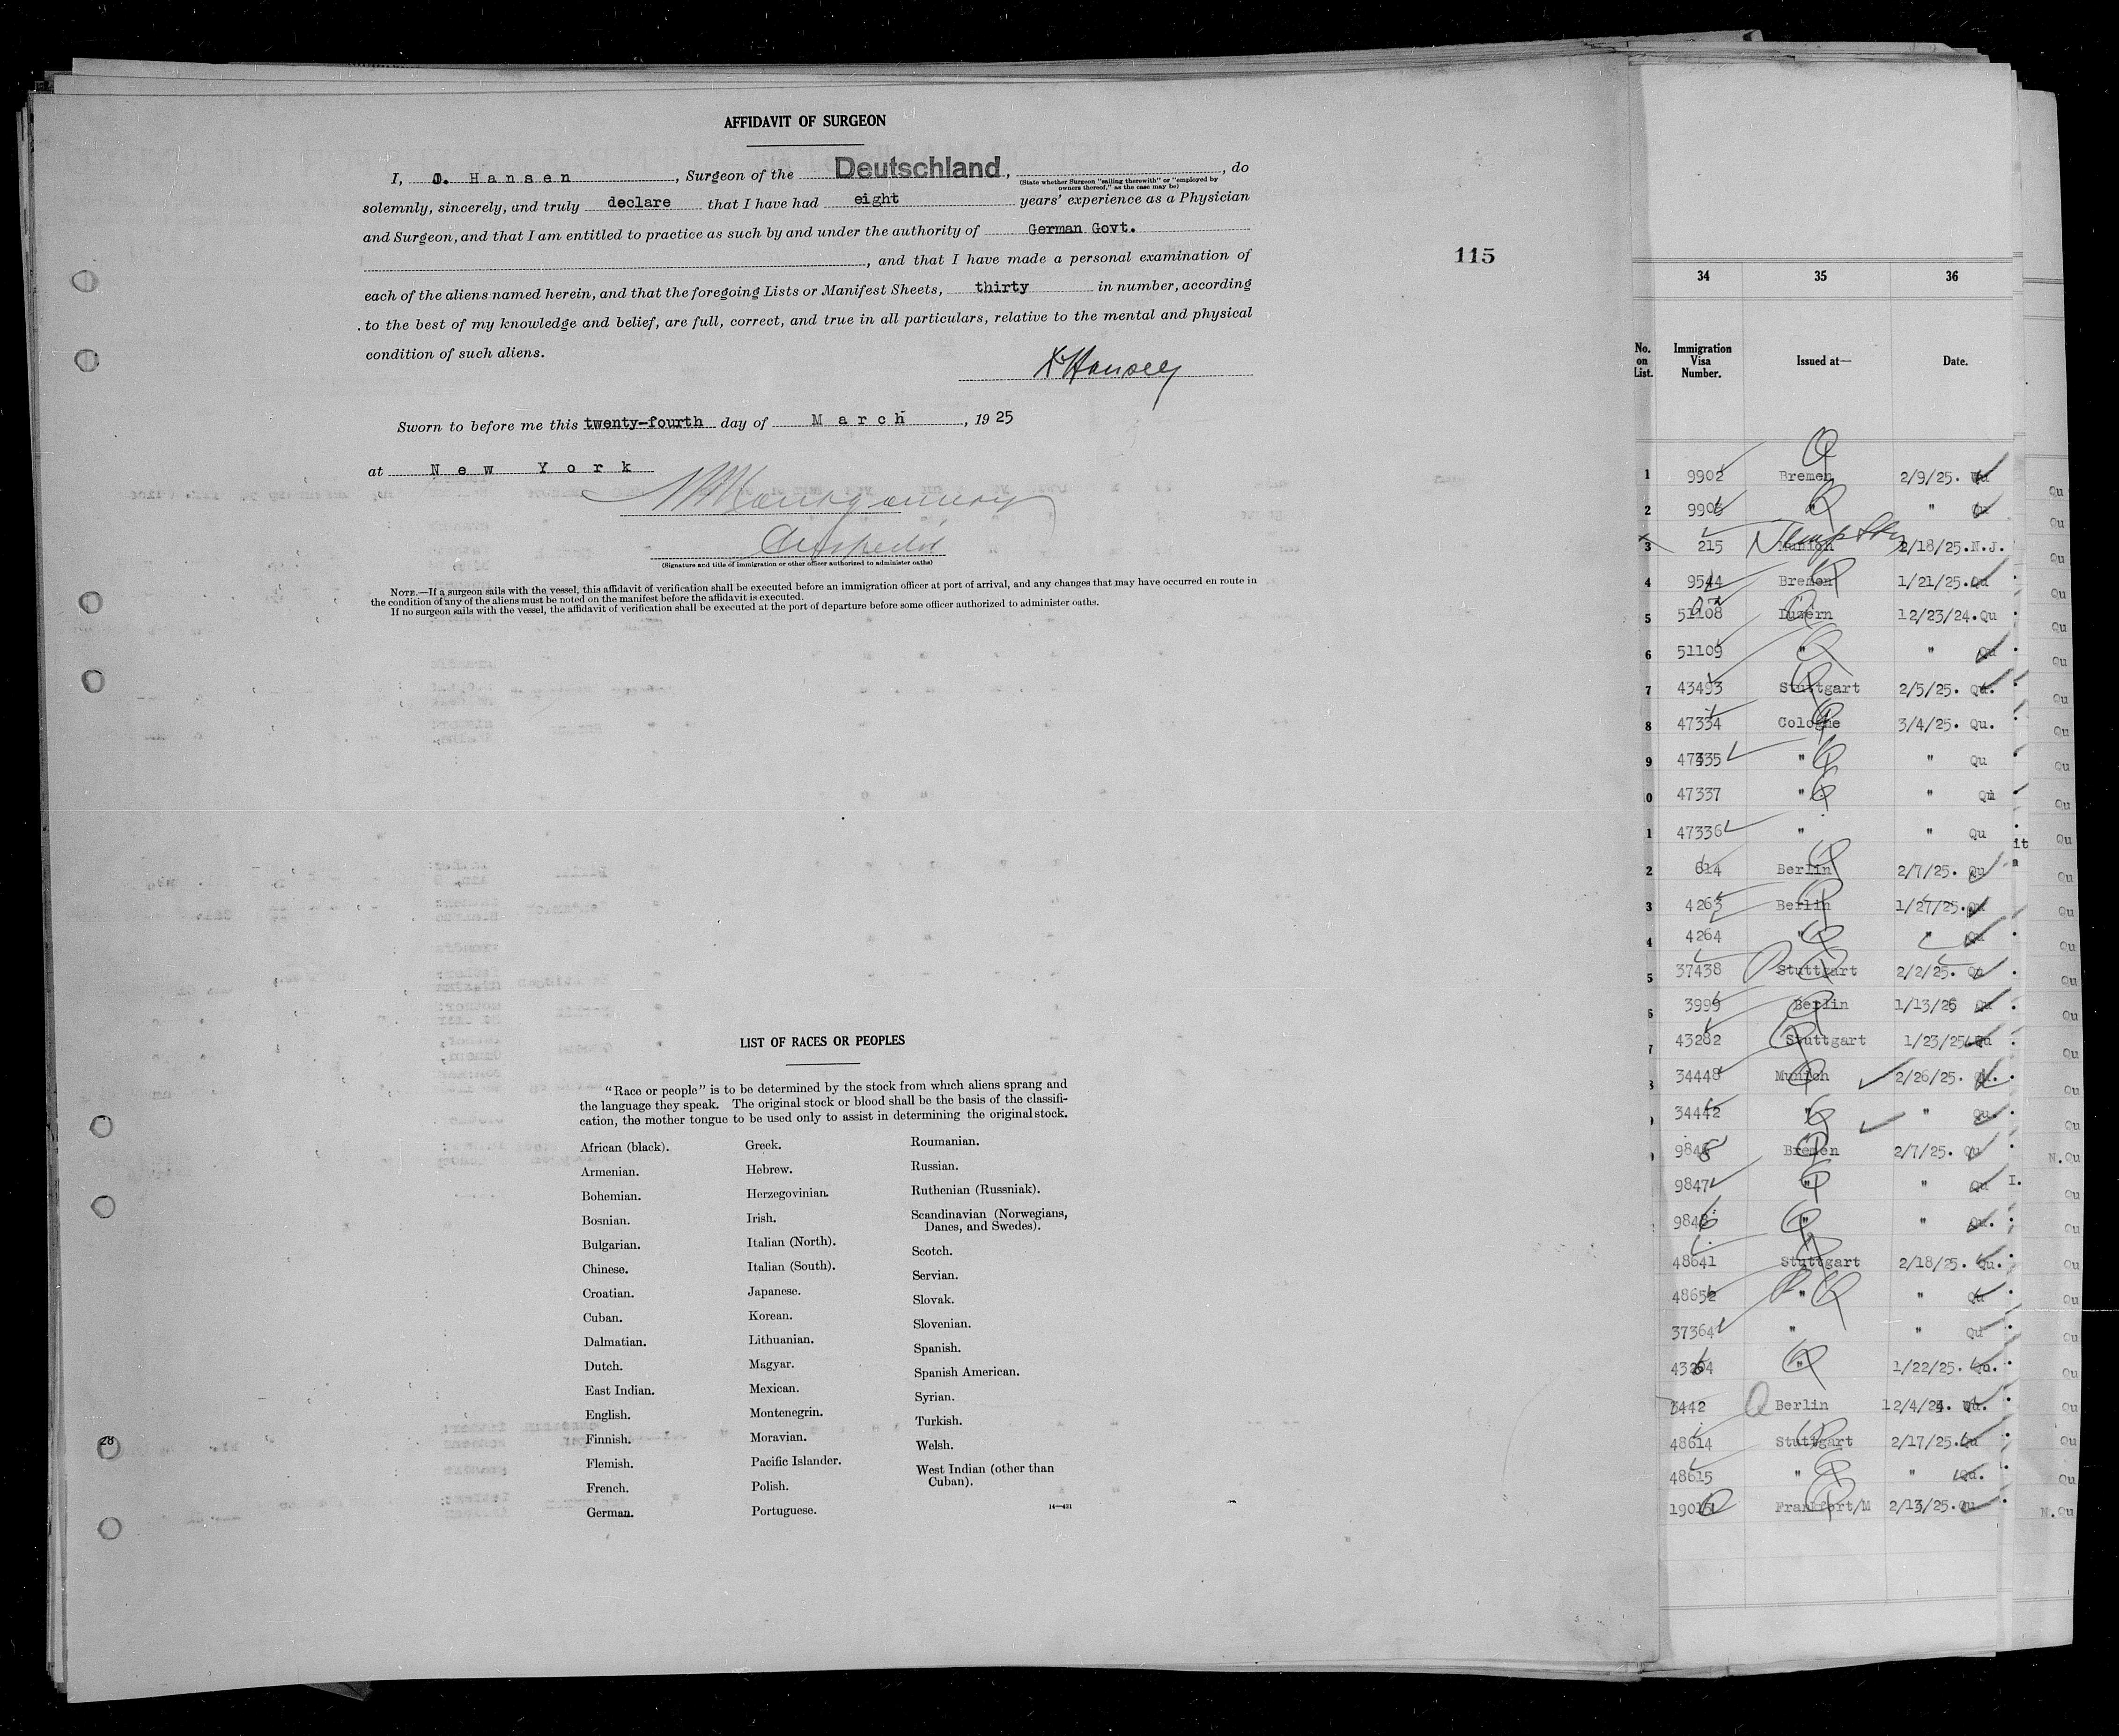 AFFIDAVIT OF SURGEON
I, O. Hansen, Surgeon of the Deutschland, , do
(State whether Surgeon "sailing therewith" or "employed by
owners thereof," as the case may be)
solemnly, sincerely, and truly declare that I have had eight years' experience as a Physician
and Surgeon, and that I am entitled to practice as such by and under the authority of German Govt.
, and that I have made a personal examination of
115
each of the aliens named herein, and that the foregoing Lists or Manifest Sheets, thirty in number, according
to the best of my knowledge and belief, are full, correct, and true in all particulars, relative to the mental and physical
condition of such aliens.
Hansen
Sworn to before me this twenty-fourth day of March, 1925
at New York
Montgomery
(Signature and title of immigration or other officer authorized to administer oaths)
NOTE.—If a surgeon sails with the vessel, this affidavit of verification shall be executed before an immigration officer at port of arrival, and any changes that may have occurred en route in
the condition of any of the aliens must be noted on the manifest before the affidavit is executed.
If no surgeon sails with the vessel, the affidavit of verification shall be executed at the port of departure before some officer authorized to administer oaths.
LIST OF RACES OR PEOPLES
"Race or people" is to be determined by the stock from which aliens sprang and
the language they speak. The original stock or blood shall be the basis of the classifi-
cation, the mother tongue to be used only to assist in determining the original stock.
African (black).
Armenian.
Bohemian.
Bosnian.
Bulgarian.
Chinese.
Croatian.
Cuban.
Dalmatian.
Dutch.
East Indian.
English.
Finnish.
Flemish.
French.
German.
Greek.
Hebrew.
Herzegovinian.
Irish.
Italian (North).
Italian (South).
Japanese.
Korean.
Lithuanian.
Magyar.
Mexican.
Montenegrin.
Moravian.
Pacific Islander.
Polish.
Portuguese.
Roumanian.
Russian.
Ruthenian (Russniak).
Scandinavian (Norwegians,
Danes, and Swedes).
Scotch.
Servian.
Slovak.
Slovenian.
Spanish.
Spanish American.
Syrian.
Turkish.
Welsh.
West Indian (other than
Cuban).
14—431
28
34 35 36
No. on List. Immigration Visa Number. Issued at— Date.
1 9902 Bremen 2/9/25. Qu
2 990 " " Qu
3 215 Munich 2/18/25. N.J.
4 9544 Bremen 1/21/25. Qu
5 51108 Luzern 12/23/24. Qu
6 51109 " " Qu
7 43493 Stuttgart 2/5/25. Qu.
8 47334 Cologne 3/4/25. Qu.
9 47335 " " Qu
0 47337 " " Qu
1 47336 " " Qu
2 614 Berlin 2/7/25. Qu
3 4263 Berlin 1/27/25. Qu
4 4264 " " Qu
5 37438 Stuttgart 2/2/25. Qu
6 3999 Berlin 1/13/25 Qu
7 43282 Stuttgart 1/23/25 Qu
8 34448 Munich 2/26/25. Qu.
34442 " " Qu.
9848 Bremen 2/7/25. Qu
9847 " " Qu
9846 " " Qu.
48641 Stuttgart 2/18/25. Qu.
48652 " " Qu
37364 " " Qu
43264 " 1/22/25. Qu.
3442 Berlin 12/4/24. Qu.
48614 Stuttgart 2/17/25. Qu
48615 " " Qu.
19015 Frankfort/M 2/13/25. Qu